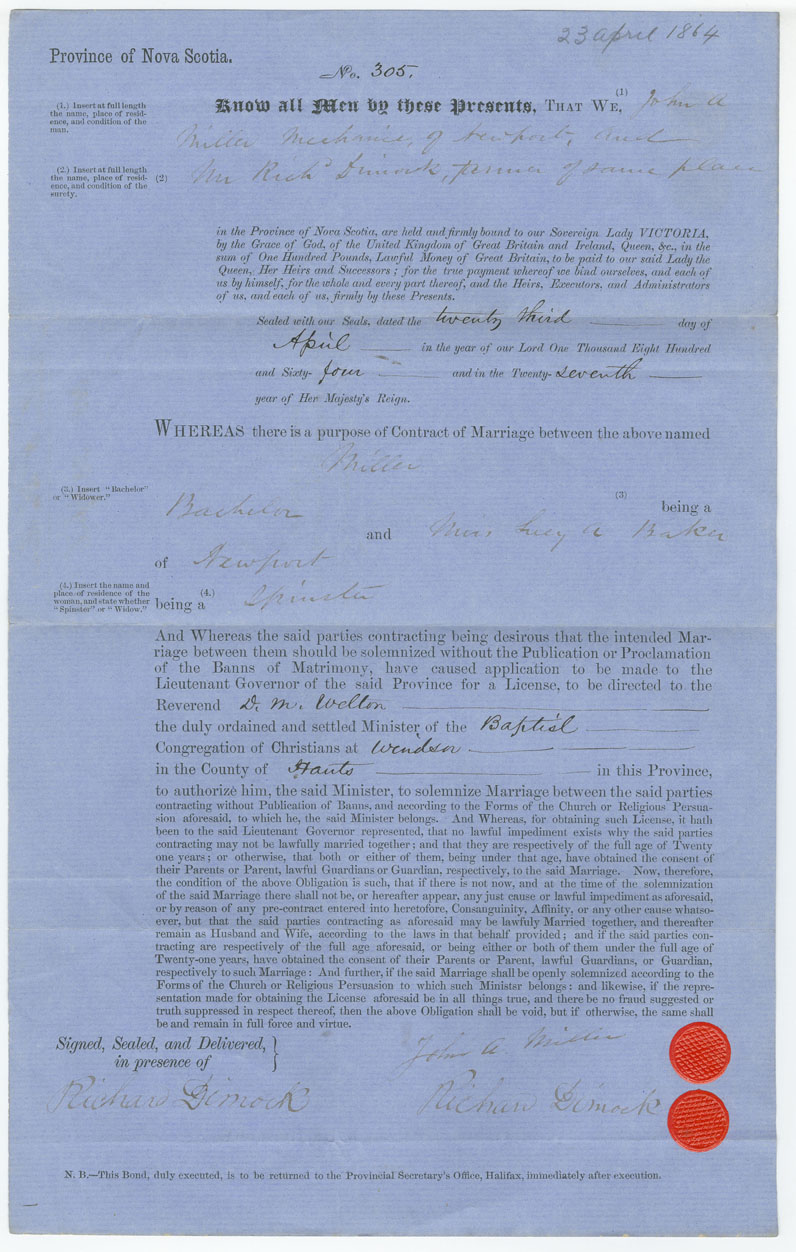 23 April 1864
Province of Nova Scotia.
No. 305.
(1.) Insert at full length
the name, place of resid-
ence, and condition of the
man.
Know all Men by these Presents, THAT WE, (1) John A
Miller Mechanic, of Newport, and
(2.) Insert at full length
the name, place of resid-
ence, and condition of the
surety.
(2) Mr Richd Dimock, farmer of same place
in the Province of Nova Scotia, are held and firmly bound to our Sovereign Lady VICTORIA,
by the Grace of God, of the United Kingdom of Great Britain and Ireland, Queen, &c., in the
sum of One Hundred Pounds, Lawful Money of Great Britain, to be paid to our said Lady the
Queen, Her Heirs and Successors; for the true payment whereof we bind ourselves, and each of
us by himself, for the whole and every part thereof, and the Heirs, Executors, and Administrators
of us, and each of us, firmly by these Presents.
Sealed with our Seals, dated the twenty third day of
April in the year of our Lord One Thousand Eight Hundred
and Sixty-four and in the Twenty-seventh
year of Her Majesty's Reign.
WHEREAS there is a purpose of Contract of Marriage between the above named
Miller
(3.) Insert "Bachelor"
or "Widower."
(3) being a
Bachelor
and Miss Lucy A Baker
of Newport
(4.) Insert the name and
place of residence of the
woman, and state whether
"Spinster" or "Widow."
being a (4.) Spinster
And Whereas the said parties contracting being desirous that the intended Mar-
riage between them should be solemnized without the Publication or Proclamation
of the Banns of Matrimony, have caused application to be made to the
Lieutenant Governor of the said Province for a License, to be directed to the
Reverend D. M. Welton
the duly ordained and settled Minister of the Baptist
Congregation of Christians at Windsor
in the County of Hants in this Province,
to authorize him, the said Minister, to solemnize Marriage between the said parties
contracting without Publication of Banns, and according to the Forms of the Church or Religious Persua-
sion aforesaid, to which he, the said Minister belongs. And Whereas, for obtaining such License, it hath
been to the said Lieutenant Governor represented, that no lawful impediment exists why the said parties
contracting may not be lawfully married together; and that they are respectively of the full age of Twenty
one years; or otherwise, that both or either of them, being under that age, have obtained the consent of
their Parents or Parent, lawful Guardians or Guardian, respectively, to the said Marriage. Now, therefore,
the condition of the above Obligation is such, that if there is not now, and at the time of the solemnization
of the said Marriage there shall not be, or hereafter appear, any just cause or lawful impediment as aforesaid,
or by reason of any pre-contract entered into heretofore, Consanguinity, Affinity, or any other cause whatso-
ever, but that the said parties contracting as aforesaid may be lawfully Married together, and thereafter
remain as Husband and Wife, according to the laws in that behalf provided; and if the said parties con-
tracting are respectively of the full age aforesaid, or being either or both of them under the full age of
Twenty-one years, have obtained the consent of their Parents or Parent, lawful Guardians, or Guardian,
respectively to such Marriage: And further, if the said Marriage shall be openly solemnized according to the
Forms of the Church or Religious Persuasion to which such Minister belongs: and likewise, if the repre-
sentation made for obtaining the License aforesaid be in all things true, and there be no fraud suggested or
truth suppressed in respect thereof, then the above Obligation shall be void, but if otherwise, the same shall
be and remain in full force and virtue.
Signed, Sealed, and Delivered, }
in presence of
John A. Miller
Richard Dimock
Richard Dimock
N. B.—This Bond, duly executed, is to be returned to the Provincial Secretary's Office, Halifax, immediately after execution.